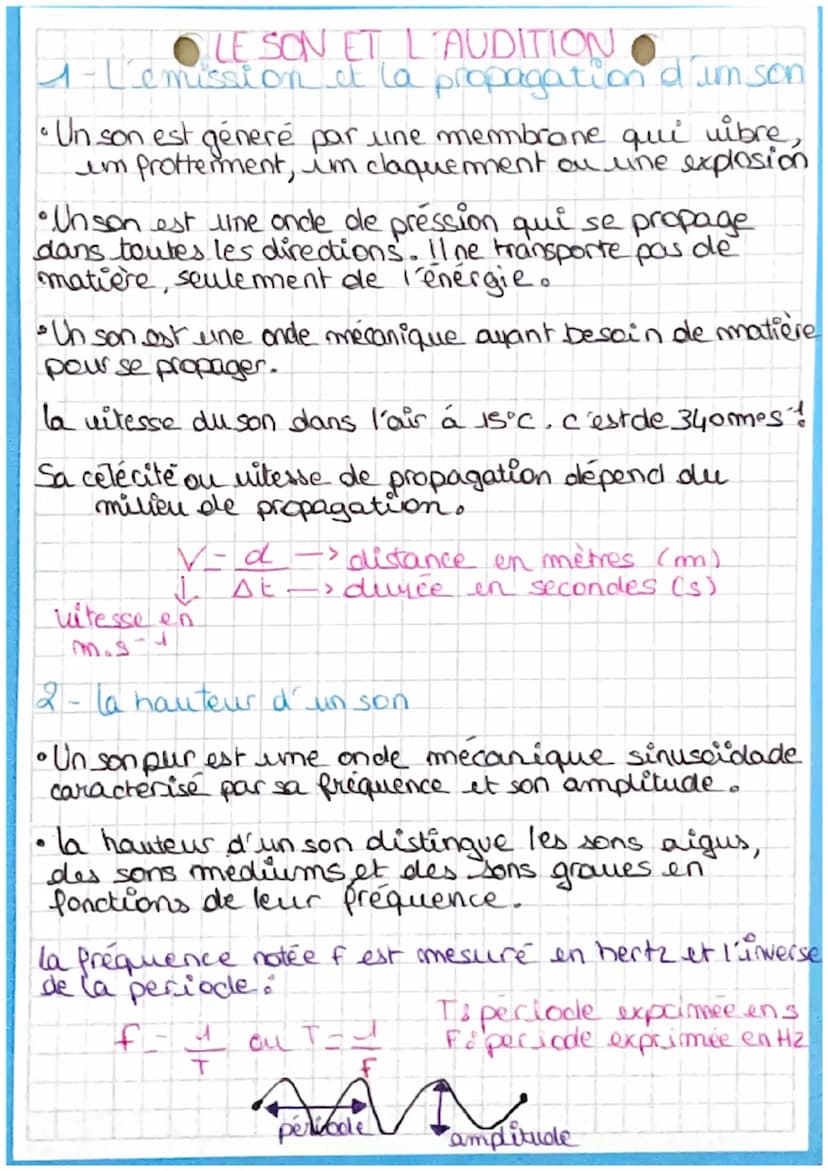 LE SON ET L'AUDITION
1-L'émission et la propagation d'un son
• Un son est géneré par une membrane qui vibre,
un frottement, un claquement ou une explosion
• Un son est une onde de préssion qui se propage
dans toutes les directions. Il ne transporte pas de
matière, seulement de l'énérgie.
• Un son est une onde mécanique ayant besoin de matière
pour se propager.
la vitesse du son dans l'air à 15°C, c'est de 340mes⁻¹.
Sa célécité ou vitesse de propagation dépend du
milieu de propagation.
V = d → distance en mètres (m)
↓ Δt → durée en secondes (s)
vitesse en
m.s⁻¹
2 - la hauteur d'un son
• Un son pur est une onde mécanique sinusoïdade
caractérisé par sa fréquence et son amplitude.
• la hauteur d'un son distingue les sons aigus,
des sons médiums et des sons graves en
fonctions de leur fréquence.
la fréquence notée f est mesuré en hertz et l'inverse
de la periode :
T : période exprimée en s
f = 1/T ou T = 1/f F : periode exprimée en Hz
période
amplitude